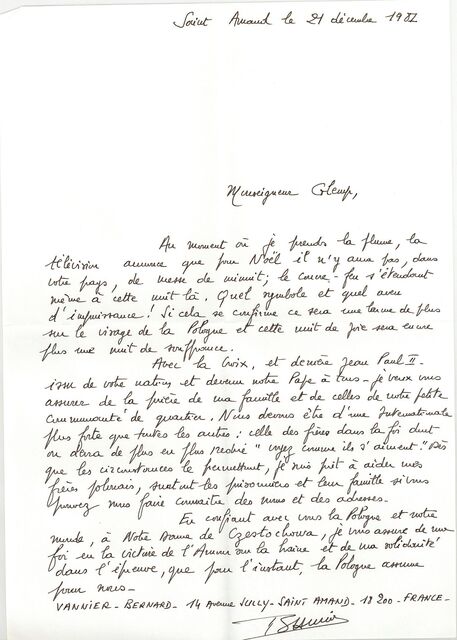 Saint Amand le 21 décembre 1981
Monseigneur Glemp,
Au moment où je prends la plume, la
télévision annonce que pour Noël il n'y aura pas, dans
votre pays, de messe de minuit; le couvre-feu s'étendant
même à cette nuit là. Quel symbole et quel aveu
d'impuissance! Si cela se confirme ce sera une larme de plus
sur le visage de la Pologne et cette nuit de joie sera encore
plus une nuit de souffrance.
Avec la Croix, et derrière Jean Paul II -
issu de votre nation et devenu notre Pape à tous - je veux vous
assurer de la prière de ma famille et de celles de notre petite
communauté de quartier. Nous devons être d'une Internationale
plus forte que toutes les autres : celle des frères dans la foi dont
on dira de plus en plus "voyez comme ils s'aiment." Dès
que les circonstances le permettent, je suis prêt à aider mes
frères polonais, surtout les prisonniers et leur famille si vous
pouvez nous faire connaître des noms et des adresses.
En confiant avec vous la Pologne et notre
monde, à Notre Dame de Czestochowa, je vous assure de ma
foi en la victoire de l'Amour sur la haine et de ma solidarité
dans l'épreuve, que pour l'instant, la Pologne assume
pour nous -
VANNIER - BERNARD - 14 Avenue SULLY - SAINT AMAND - 18 200 - FRANCE -